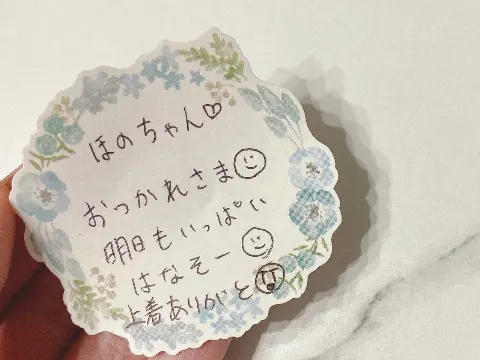 ほのちゃん♡
おつかれさま☺
明日もいっぱい
はなそー☺
上着ありがと